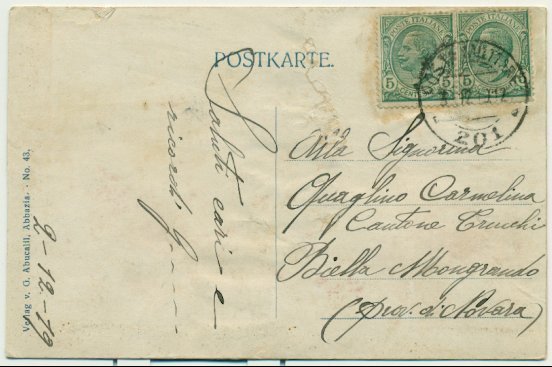 POSTKARTE.
POSTE ITALIANE
POSTE ITALIANE
5
5
5
201
Saluti cari e
ricordi
2-12-19
Verlag v. G. Abucaili, Abbazia. - No. 43.
Alla Signorina
Quaglino Carmelina
Cantone
Biella Mongrando
(prov. di Novara)